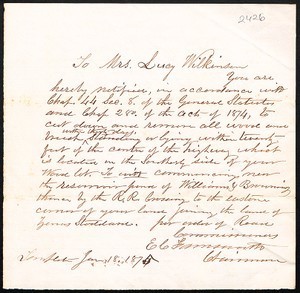 2426
To Mrs. Lucy Wilkinson
You are
hereby notified, in accordance with
Chap. 44 Sec. 8. of the General Statutes
and Chap 280. of the act of 1874, to
cut down and remove all wood and
within thirty days
brush Standing or lying within
feet of the centre of the highway which
is located on the Southerly side of your
Wood lot. To wit commencing near
the reservoir pond of Williams &
thence by the R.R. Crossing to the eastern
corner of your land joining the land of
Stoddard. per order of Road
Commissioners
E. C. Farnsworth
Chairman
Templeton Jan. 18, 1875